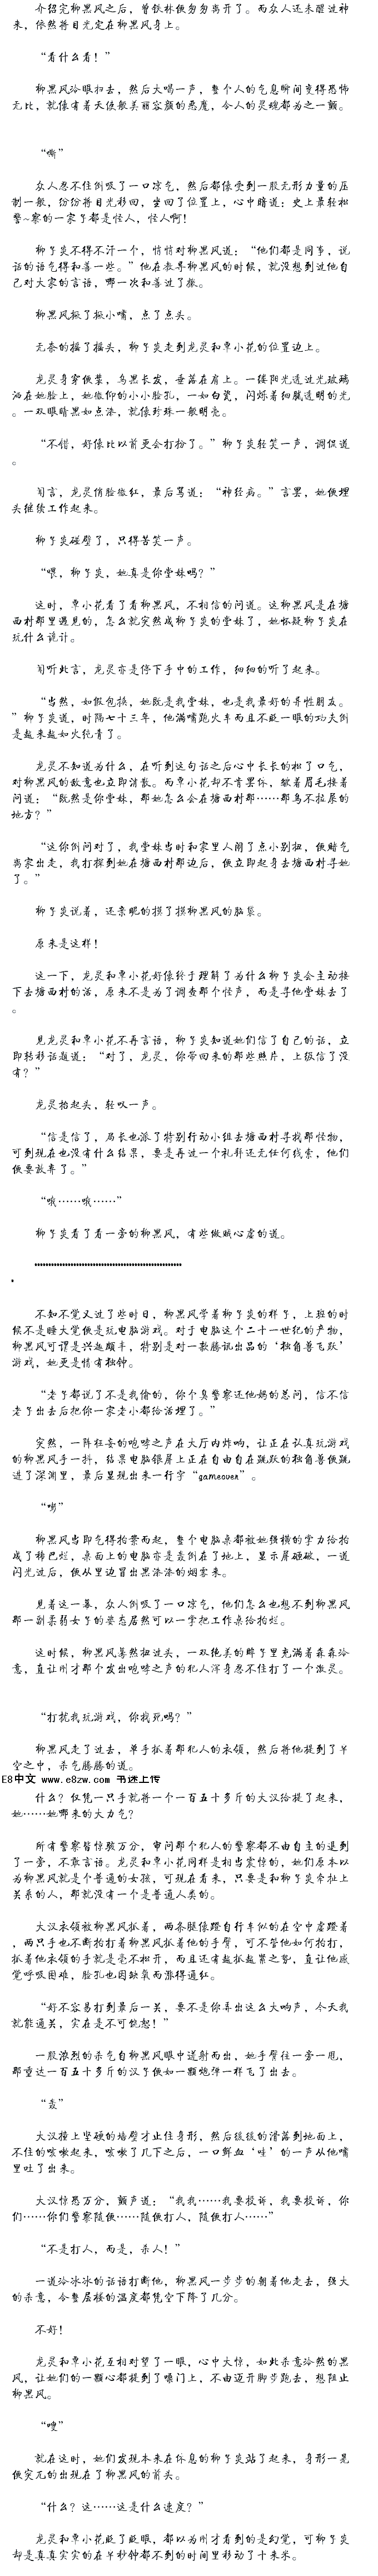 介绍完柳黑风之后，曾铁林便匆匆离开了。而众人还未醒过神
来，依然将目光定在柳黑风身上。
“看什么看！”
柳黑风冷眼扫去，然后大喝一声，整个人的气息瞬间变得恐怖
无比，就像有着天使般美丽容颜的恶魔，令人的灵魂都为之一颤。
“嘶”
众人忍不住倒吸了一口凉气，然后都像受到一股无形力量的压
制一般，纷纷将目光移回，坐回了位置上，心中暗道：史上最轻松
警~察的一家子都是怪人，怪人啊！
柳子炎不得不汗一个，悄悄对柳黑风道：“他们都是同事，说
话的语气得和善一些。”他在教导柳黑风的时候，就没想到过他自
己对大家的言语，哪一次和善过了撒。
柳黑风撅了撅小嘴，点了点头。
无奈的摇了摇头，柳子炎走到龙灵和覃小花的位置边上。
龙灵身穿便装，乌黑长发，垂落在肩上。一缕阳光透过光玻璃
洒在她脸上，她微仰的小小脸孔，一如白瓷，闪烁着细腻透明的光
。一双眼睛黑如点漆，就像珍珠一般明亮。
“不错，好像比以前更会打扮了。”柳子炎轻笑一声，调侃道
。
闻言，龙灵俏脸微红，最后骂道：“神经病。”言罢，她便埋
头继续工作起来。
柳子炎碰壁了，只得苦笑一声。
“喂，柳子炎，她真是你堂妹吗？”
这时，覃小花看了看柳黑风，不相信的问道。这柳黑风是在塘
西村那里遇见的，怎么就突然成柳子炎的堂妹了，她怀疑柳子炎在
玩什么诡计。
闻听此言，龙灵亦是停下手中的工作，细细的听了起来。
“当然，如假包换，她既是我堂妹，也是我最好的异性朋友。
”柳子炎道，时隔七十三年，他满嘴跑火车而且不眨一眼的功夫倒
是越来越如火纯青了。
龙灵不知道为什么，在听到这句话之后心中长长的松了口气，
对柳黑风的敌意也立即消散。而覃小花却不肯罢休，皱着眉毛接着
问道：“既然是你堂妹，那她怎么会在塘西村那……那鸟不拉屎的
地方？”
“这你倒问对了，我堂妹当时和家里人闹了点小别扭，便赌气
离家出走，我打探到她在塘西村那边后，便立即起身去塘西村寻她
了。”
柳子炎说着，还亲昵的摸了摸柳黑风的脑袋。
原来是这样！
这一下，龙灵和覃小花好像终于理解了为什么柳子炎会主动接
下去塘西村的活，原来不是为了调查那个怪声，而是寻他堂妹去了
。
见龙灵和覃小花不再言语，柳子炎知道她们信了自己的话，立
即转移话题道：“对了，龙灵，你带回来的那些照片，上级信了没
有？”
龙灵抬起头，轻叹一声。
“信是信了，局长也派了特别行动小组去塘西村寻找那怪物，
可到现在也没有什么结果，要是再过一个礼拜还无任何线索，他们
便要放弃了。”
“哦……哦……”
柳子炎看了看一旁的柳黑风，有些做贼心虚的道。
不知不觉又过了些时日，柳黑风学着柳子炎的样子，上班的时
候不是睡大觉便是玩电脑游戏。对于电脑这个二十一世纪的产物，
柳黑风可谓是兴趣颇丰，特别是对一款腾讯出品的‘独角兽飞跃’
游戏，她更是情有独钟。
“老子都说了不是我偷的，你个臭警察还他妈的总问，信不信
老子出去后把你一家老小都给活埋了。”
突然，一阵狂妄的咆哮之声在大厅内炸响，让正在认真玩游戏
的柳黑风手一抖，结果电脑银屏上正在自由自在跳跃的独角兽便跳
进了深渊里，最后显现出来一行字“gameover”。
“嘭”
柳黑风当即气得拍案而起，整个电脑桌都被她强横的掌力给拍
成了稀巴烂，桌面上的电脑亦是轰倒在了地上，显示屏砸破，一道
闪光过后，便从里边冒出黑漆漆的烟雾来。
见着这一幕，众人倒吸了一口凉气，他们怎么也想不到柳黑风
那一副柔弱女子的姿态居然可以一掌把工作桌给拍烂。
这时候，柳黑风蓦然扭过头，一双绝美的眸子里充满着森森冷
意，直让刚才那个发出咆哮之声的犯人浑身忍不住打了一个激灵。
“打扰我玩游戏，你找死吗？”
柳黑风走了过去，单手扒着那犯人的衣领，然后将他提到了半
空之中，杀气腾腾的道。
E8中文 www.e8zw.com 书迷上传
什么？仅凭一只手就将一个一百五十多斤的大汉给提了起来，
她……她哪来的大力气？
所有警察皆惊骇万分，审问那个犯人的警察都不由自主的退到
了一旁，不敢言语。龙灵和覃小花同样是相当震惊的，她们原本以
为柳黑风就是个普通的女孩，可现在看来，只要是和柳子炎牵扯上
关系的人，那就没有一个是普通人类的。
大汉衣领被柳黑风扒着，两条腿像蹬自行车似的在空中虚蹬着
，两只手也不断拍打着柳黑风扒着他的手臂，可不管他如何拍打，
扒着他衣领的手就是毫不松开，而且还有越扒越紧之势，直让他感
觉呼吸困难，脸孔也因缺氧而涨得通红。
“好不容易打到最后一关，要不是你弄出这么大响声，今天我
就能通关，实在是不可饶恕！”
一股浓烈的杀气自柳黑风眼中迸射而出，她手臂往一旁一甩，
那重达一百五十多斤的汉子便如一颗炮弹一样飞了出去。
“轰”
大汉撞上坚硬的墙壁才止住身形，然后缓缓的滑落到地面上，
不住的咳嗽起来，咳嗽了几下之后，一口鲜血‘哇’的一声从他嘴
里吐了出来。
大汉惊恐万分，颤声道：“我我……我要投诉，我要投诉，你
们……你们警察随便……随便打人，随便打人……”
“不是打人，而是，杀人！”
一道冷冰冰的话语打断他，柳黑风一步步的朝着他走去，强大
的杀意，令整层楼的温度都凭空下降了几分。
不好！
龙灵和覃小花互相对望了一眼，心中大惊，如此杀意泠然的黑
风，让她们的一颗心都提到了嗓门上，不由迈开脚步跑去，想阻止
柳黑风。
“嗖”
就在这时，她们发现本来在休息的柳子炎站了起来，身形一晃
便突兀的出现在了柳黑风的前头。
“什么？这……这是什么速度？”
龙灵和覃小花眨了眨眼，都以为刚才看到的是幻觉，可柳子炎
却是真真实实的在半秒钟都不到的时间里移动了十来米。